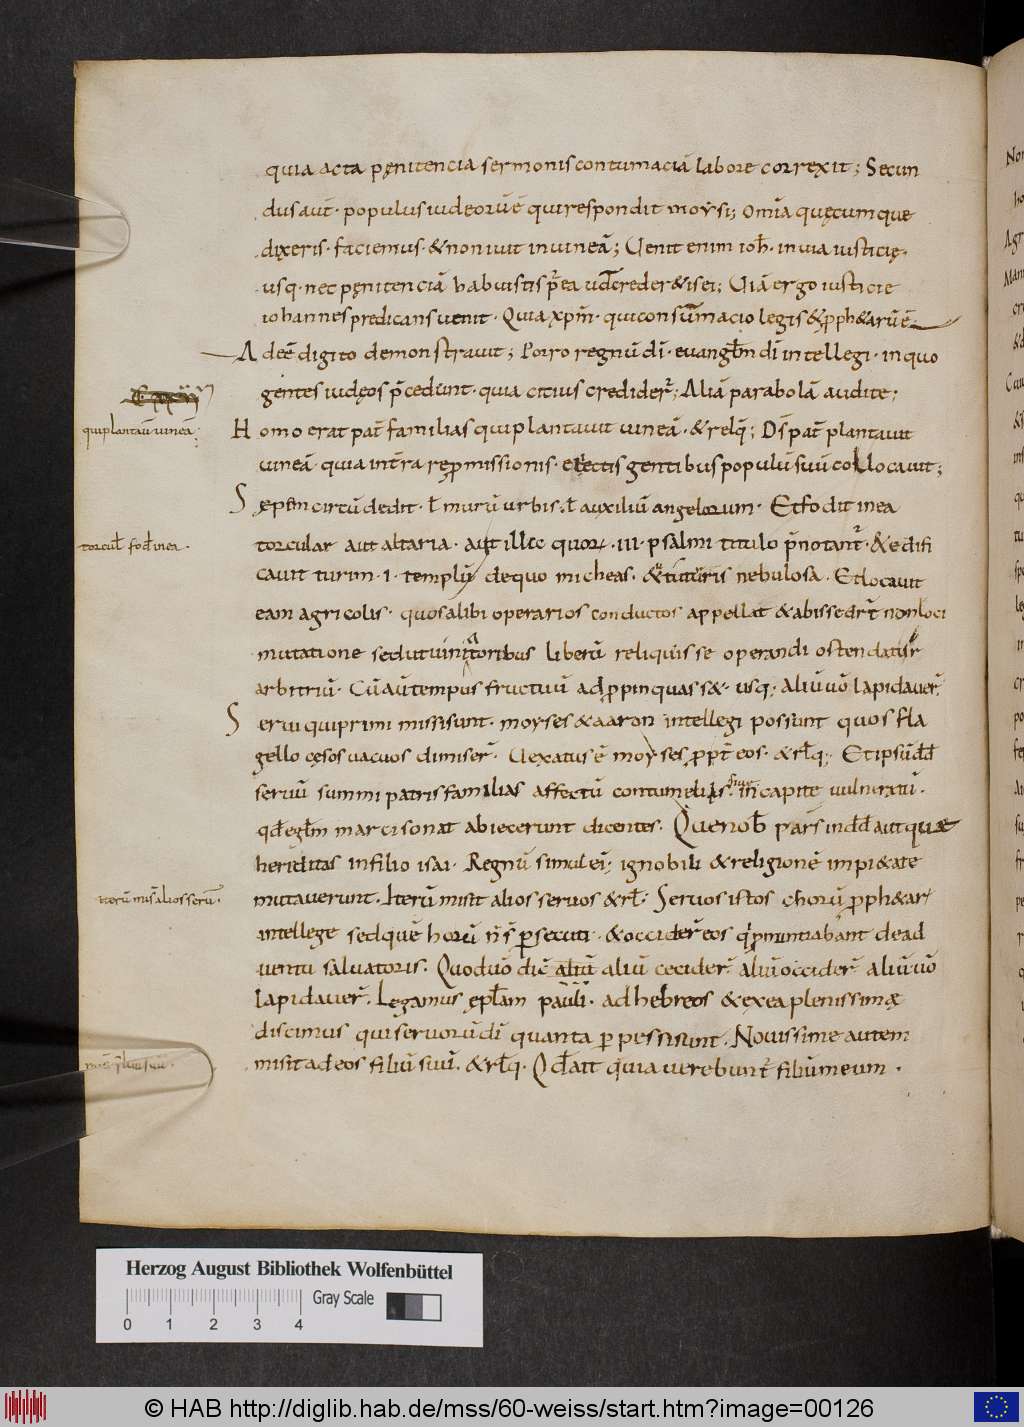 quia acta penitencia sermonis contumaciā labore correxit; Secun
dus aut̄· populus iudeorū ē qui respondit moysi; Omīa quęcumque
dixeris· faciemus· & non iuit in vineā; Uenit enim ioh̄· in via iusticię·
usq· nec penitenciā habuistis p̄ea ut crederetis ei; Uiā ergo iusticie
iohannes predicans uenit· Quia xp̄m· qui consūmacio legis & p̄ph&arū ē
Adee digito demonstrauit; Porro regnū dī· euangłm dī intellegi· in quo
gentes iudęos p̄cedunt· quia citius credider̄; Aliā parabolā audite;
qui plantauit vinea·
Homo erat pat̄ familias qui plantauit vineā· & relq̄; Ds̄ pat̄ plantauit
vineā· quia int̄ra rep̄missionis· eiectis gentibus populū suū collocauit;
Sępem circūdedit· ł murū urbis· ł auxiliū angelorum· Et fodit in ea
torcuł fod̄ in ea·
torcular aut altaria· aut illcc quor· III· psalmi titulo p̄notant̄· & edifi
cauit turim· i· templū de quo micheas· & turris nebulosa· Et locauit
eam agricolis· quos alibi operarios conductos appellat & abisse dr̄t non loci
mutatione sed ut vinitatoribus liberū reliquisse operandi ostendatur
arbitriū· Cū aut̄ tempus fructuū adp̄pinquass&· usq; aliū uō lapidauer̄·
Serui qui primi missi sunt· moyses & aaron intellegi possunt quos fla
gello cęsos vacuos dimiser̄· Uexatus ē moyses p̄pt̄ eos· & rłq; Et ipsūd̄d̄
seruū summi patris familias affectū contumeliis· siue in capite vulneratū·
qd̄ egłm marci sonat abiecerunt dicentes· Quę nob̄ pars in dd̄ aut quæ
heriditas in filio isai· Regnū simul ei; ignobili & religionē impi&ate
iterū mis̄ alios seruū·
mutauerunt· Iterū misit alios seruos & rł· Seruos istos chorū p̄ph&ar
intellege sed quē horū nn̄s p̄secuti· & occider̄ eos q̄ p̄nuntiabant de ad
uentu saluatoris· Quod uō dic̄ aliū aliū cecider̄ aliū occider̄ aliū uō
lapidauer̄· Legamus ępłam pauli· ad hebreos & ex ea plenissimę
discimus qui seruorū dī quanta p̄pessi sunt· Nouissime autem
mis̄ filiū suū·
misit ad eos filiū suū· & rłq· Qd̄ ait quia uerebunt̄ filiū meum·
Herzog August Bibliothek Wolfenbüttel
Gray Scale
0 1 2 3 4
© HAB http://diglib.hab.de/mss/60-weiss/start.htm?image=00126